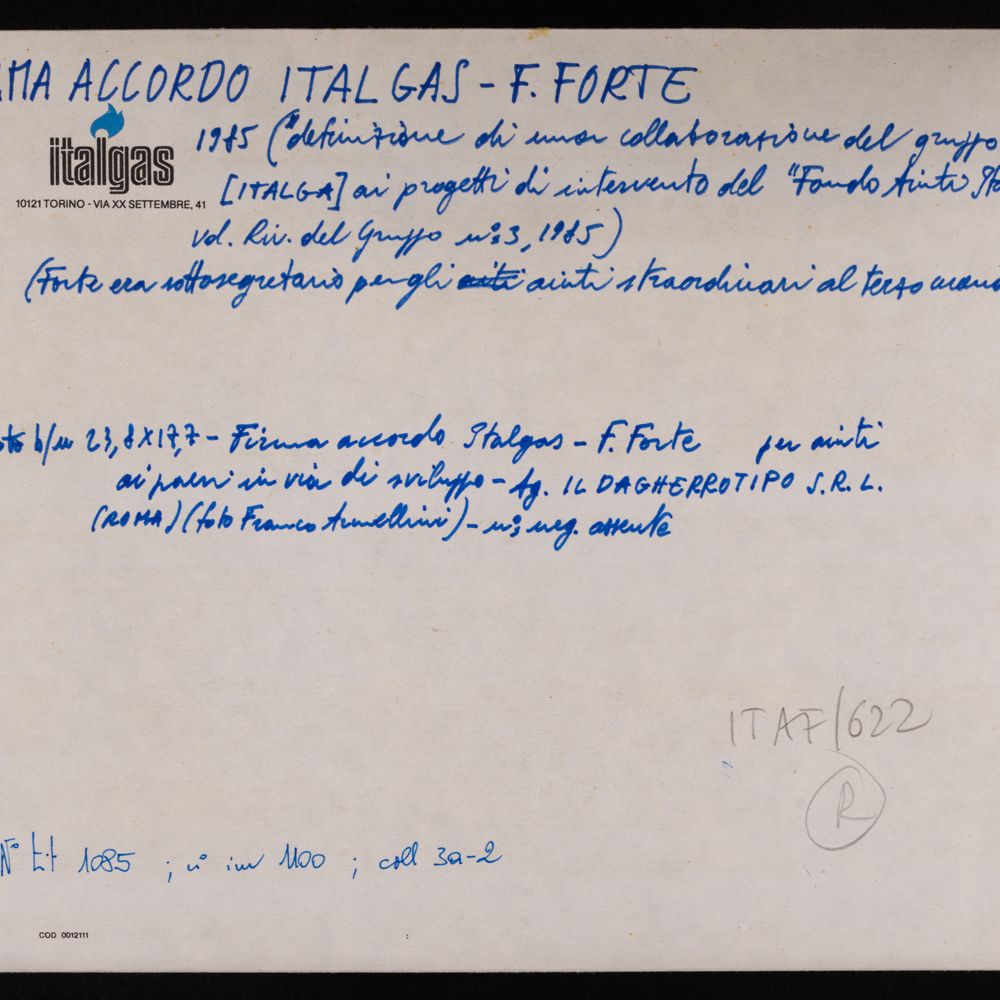 MA ACCORDO ITALGAS - F. FORTE
italgas
10121 TORINO - VIA XX SETTEMBRE, 41
1985 ("definizione di una collaborazione del gruppo
[ITALGA] ai progetti di intervento del "Fondo Aiuti
vd. Riv. del Gruppo n° 3, 1985)
(Forte era sottosegretario per gli aiuti straordinari al terzo
b/n 23,8X17,7 - Firma accordo Italgas - F. Forte per aiuti
ai paesi in via di sviluppo - Ag. IL DAGHERROTIPO S.R.L.
(ROMA) (foto Franco Armellini) - n° 3 neg. assente
ITAF/622
R
N° t.t 1085 ; n° inv 1100 ; coll 3a-2
COD 0012111